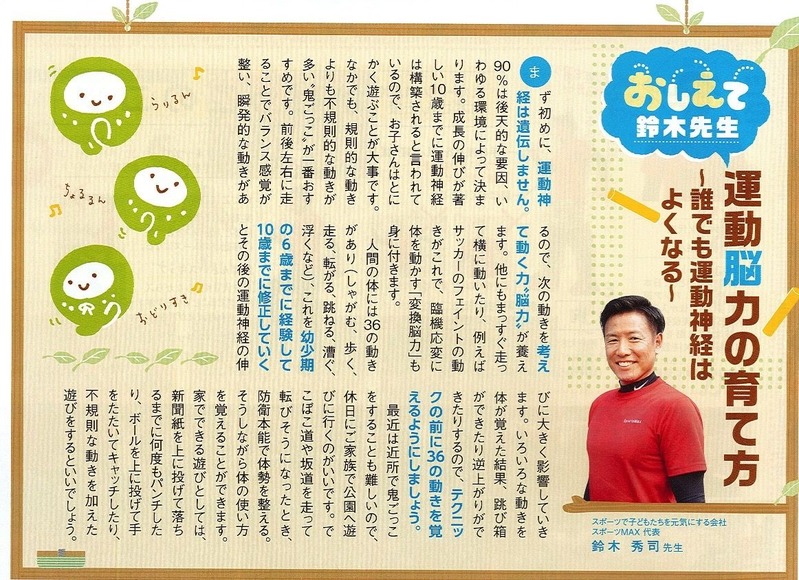 おしえて
鈴木先生
運動脳力の育て方
～誰でも運動神経は
よくなる～
まず初めに、運動神
経は遺伝しません。
90％は後天的な要因、い
わゆる環境によって決ま
ります。成長の伸びが著
しい10歳までに運動神経
は構築されると言われて
いるので、お子さんはとに
かく遊ぶことが大事です。
なかでも、規則的な動き
よりも不規則的な動きが
多い“鬼ごっこ”が一番おす
すめです。前後左右に走
ることでバランス感覚が
整い、瞬発的な動きがあ
るので、次の動きを考え
て動く力“脳力”が養え
ます。他にもまっすぐ走っ
て横に動いたり、例えば
サッカーのフェイントの動
きがこれで、臨機応変に
体を動かす「変換脳力」も
身に付きます。
人間の体には36の動き
があり（しゃがむ、歩く、
走る、転がる、跳ねる、漕ぐ、
浮くなど）、これを幼少期
の6歳までに経験して
10歳までに修正していく
とその後の運動神経の伸
びに大きく影響していき
ます。いろいろな動きを
体が覚えた結果、跳び箱
ができたり逆上がりがで
きたりするので、テクニッ
クの前に36の動きを覚
えるようにしましょう。
最近は近所で鬼ごっこ
をすることも難しいので、
休日にご家族で公園へ遊
びに行くのがいいです。で
こぼこ道や坂道を走って
転びそうになったとき、
防衛本能で体勢を整える。
そうしながら体の使い方
を覚えることができます。
家でできる遊びとしては、
新聞紙を上に投げて落ち
るまでに何度もパンチした
り、ボールを上に投げて手
をたたいてキャッチしたり、
不規則な動きを加えた
遊びをするといいでしょう。
うらりるん
ちょるるん
おどりすき
スポーツで子どもたちを元気にする会社
スポーツMAX 代表
鈴木 秀司先生